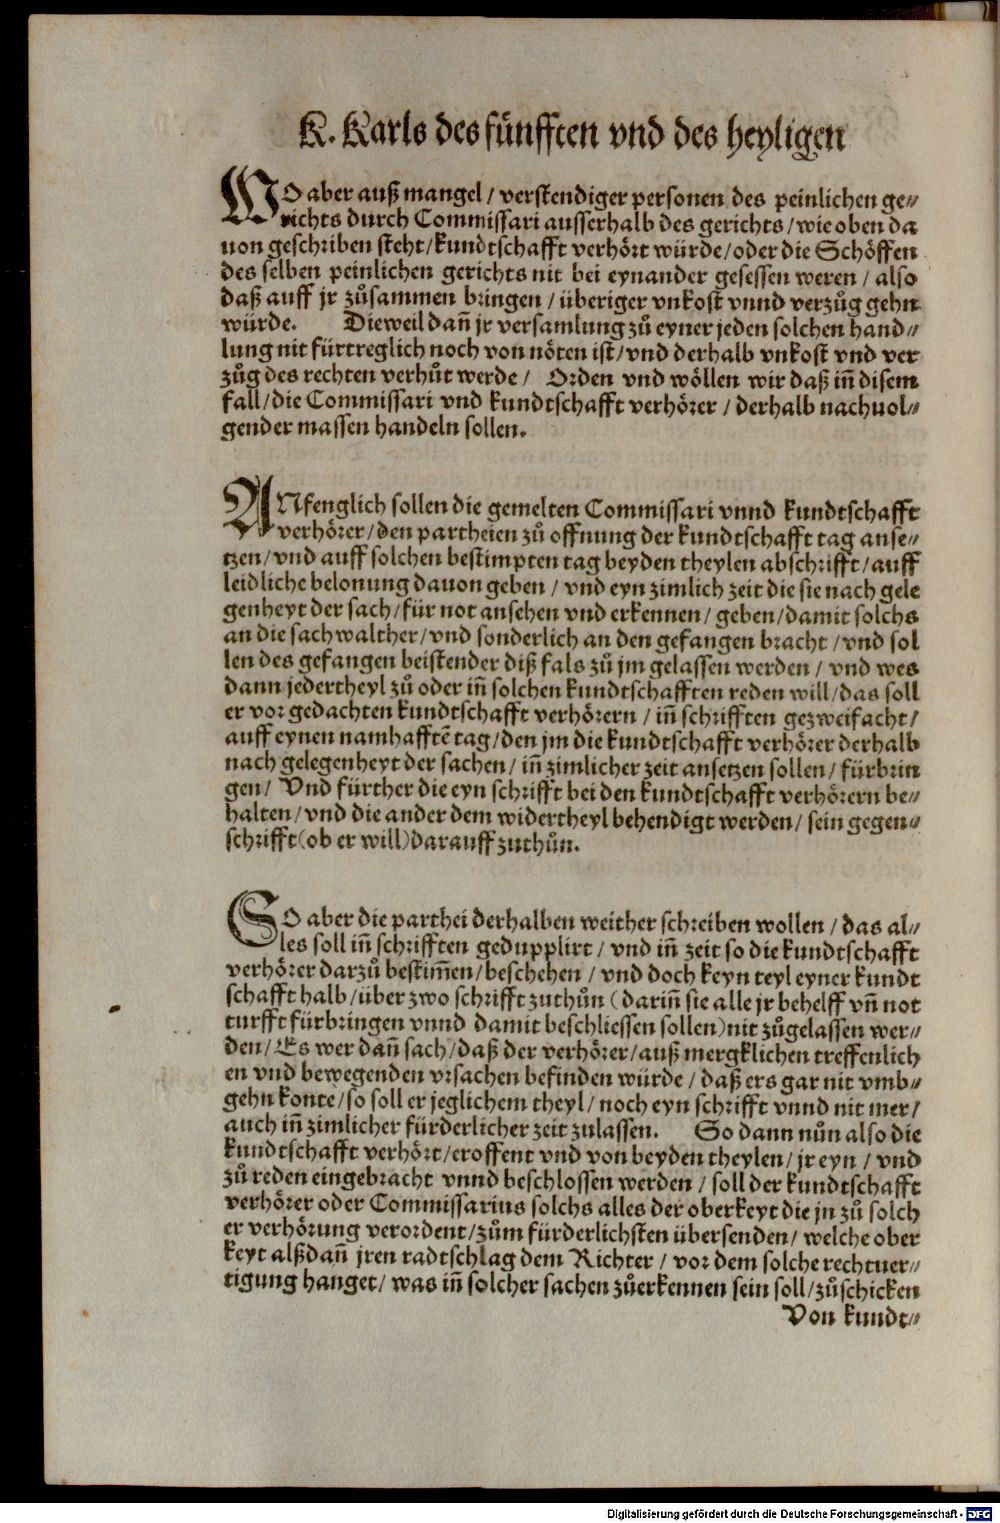 K. Karls des fünfften vnd des heyligen
WO aber auß mangel / verstendiger personen des peinlichen ge⸗
richts durch Commissari ausserhalb des gerichts / wie oben da
uon geschriben steht / kundtschafft verhört würde / oder die Schöffen
des selben peinlichen gerichts nit bei eynander gesessen weren / also
daß auff jr zůsammen bringen / überiger vnkost vnnd verzůg gehn
würde. Dieweil dañ jr versamlung zů eyner jeden solchen hand⸗
lung nit fürtreglich noch von nöten ist / vnd derhalb vnkost vnd ver
zůg des rechten verhůt werde / Orden vnd wöllen wir daß iñ disem
fall / die Commissari vnd kundtschafft verhörer / derhalb nachuol⸗
gender massen handeln sollen.
ANfenglich sollen die gemelten Commissari vnnd kundtschafft
verhörer / den partheien zů offnung der kundtschafft tag anse⸗
tzen / vnd auff solchen bestimpten tag beyden theylen abschrifft / auff
leidliche belonung dauon geben / vnd eyn zimlich zeit die sie nach gele
genheyt der sach / für not ansehen vnd erkennen / geben / damit solchs
an die sachwalther / vnd sonderlich an den gefangen bracht / vnd sol
len des gefangen beistender diß fals zů jm gelassen werden / vnd wes
dann jedertheyl zů oder iñ solchen kundtschafften reden will / das soll
er vor gedachten kundtschafft verhörern / iñ schrifften gezweifacht /
auff eynen namhafftē tag / den jm die kundtschafft verhörer derhalb
nach gelegenheyt der sachen / iñ zimlicher zeit ansetzen sollen / fürbrin
gen / Vnd fürther die eyn schrifft bei den kundtschafft verhörern be⸗
halten / vnd die ander dem widertheyl behendigt werden / sein gegen⸗
schrifft (ob er will) darauff zuthůn.
SO aber die parthei derhalben weither schreiben wollen / das al⸗
les soll iñ schrifften gedupplirt / vnd iñ zeit so die kundtschafft
verhörer darzů bestim̄en / beschehen / vnd doch keyn teyl eyner kundt
schafft halb / über zwo schrifft zuthůn (dariñ sie alle jr behelff vñ not
turfft fürbringen vnnd damit beschliessen sollen) nit zůgelassen wer⸗
den / Es wer dañ sach / daß der verhörer / auß mergklichen treffenlich
en vnd bewegenden vrsachen befinden würde / daß ers gar nit vmb⸗
gehn konte / so soll er jeglichem theyl / noch eyn schrifft vnnd nit mer /
auch iñ zimlicher fürderlicher zeit zulassen. So dann nůn also die
kundtschafft verhört / eroffent vnd von beyden theylen / jr eyn / vnd
zů reden eingebracht vnnd beschlossen werden / soll der kundtschafft
verhörer oder Commissarius solchs alles der oberkeyt die jn zů solch
er verhörung verordent / zům fürderlichsten übersenden / welche ober
keyt alßdañ jren radtschlag dem Richter / vor dem solche rechtuer⸗
tigung hanget / was iñ solcher sachen zůerkennen sein soll / zůschicken
Von kundt⸗
Digitalisierung gefördert durch die Deutsche Forschungsgemeinschaft - DFG